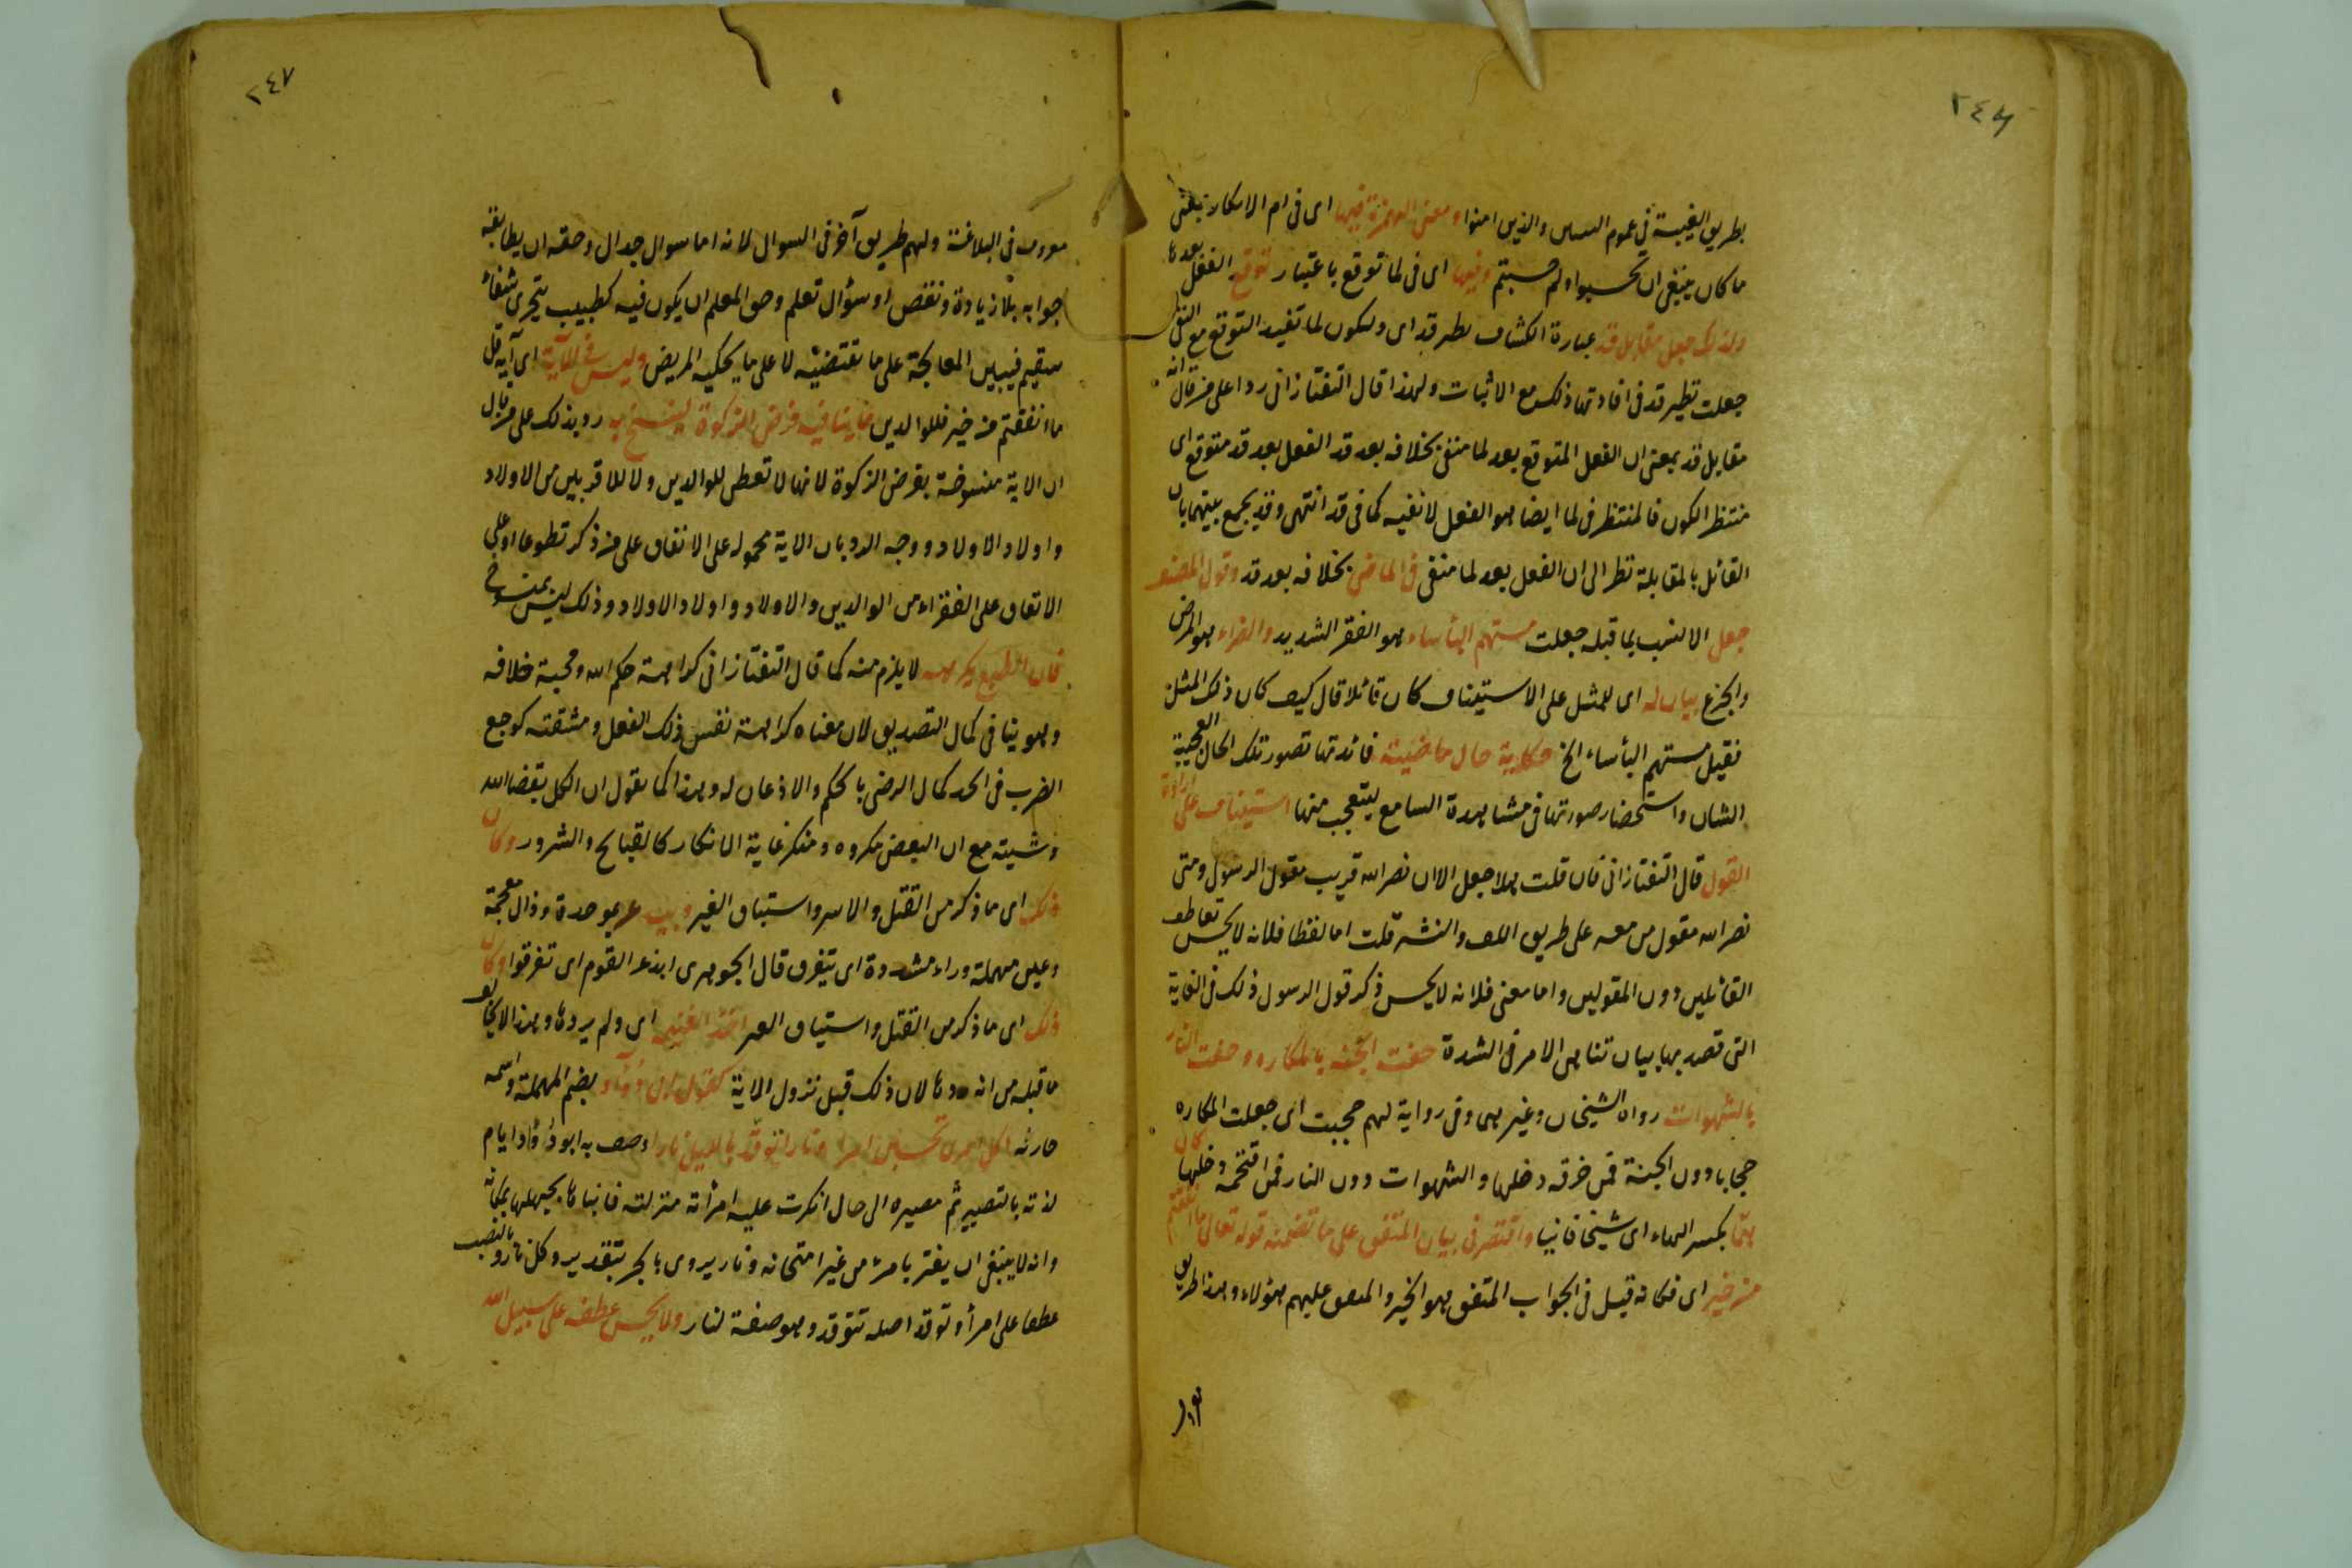 ٢٤٦
بطريق الغيبة في عموم الناس والذين امنوا ومعنى الهمزة فيها اى فى ام الانكار بمعنى
ما كان ينبغى ان تحسبوا ولم حسبتم وفيها اى فى لما توقع باعتبار توقع الفعل بعدها
ولذلك جعل مقابل قد عبارة الكشاف نظير قد اى ولكون لما تفيد التوقع مع النفى
جعلت نظير قد فى افادتها ذلك مع الاثبات ولهذا قال التفتازانى ردا على من قال انه
مقابل قد بمعنى ان الفعل المتوقع بعد لما منفى بخلافه بعد قد الفعل بعد قد متوقع اى
منتظر الكون فالمنتظر فى لما ايضا هو الفعل لا نفيه كما فى قد انتهى وقد يجمع بينهما بان
القائل بالمقابلة نظر الى ان الفعل بعد لما منفى فى الماضى بخلافه بعد قد وقول المصنف
جعل الانسب بما قبله جعلت مستهم البأساء هو الفقر الشديد والضراء هو المرض
والجزع بيان له اى للمثل على الاستيناف كان قائلا قال كيف كان ذلك المثل
فقيل مستهم البأساء الخ حكاية حال ماضية فائدتها تصور تلك الحال العجيبة
الشان واستحضار صورتها فى مشاهدة السامع ليتعجب منها استيناف على ارادة
القول قال التفتازانى فان قلت هلا جعل الا ان نصر الله قريب مقول الرسول ومتى
نصر الله مقول من معه على طريق اللف والنشر قلت اما لفظا فلانه لا يحسن تعاطف
القائلين دون المقولين واما معنى فلانه لا يحسن ذكر قول الرسول ذلك فى الغاية
التى قصد بها بيان تناهى الامر فى الشدة حفت الجنة بالمكاره وحفت النار
بالشهوات رواه الشيخان وغيرهما وفى رواية لهم حجبت اى جعلت المكاره
حجابا دون الجنة فمن خرقه دخلها والشهوات دون النار فمن اقتحمه دخلها كان
همّا بكسر الهاء اى شيخا فانيا واقتصر فى بيان المنفق على ما تضمنه قوله تعالى ما انفقتم
من خير اى فكانه قيل فى الجواب المنفق هو الخير والمنفق عليهم هؤلاء وهذا طريق
٢٤٧
معروف فى البلاغة ولهم طريق آخر فى السوال لانه اما سوال جدال وحقه ان يطابقه
جوابه بلا زيادة ونقص او سؤال تعلم وحق المعلم ان يكون فيه كطبيب يتحرى شفاء
سقيم فيبين المعالجة على ما تقتضيه لا على ما يحكيه المريض وليس فى الآية اى آية قل
ما انفقتم من خير فللوالدين ما ينافيه فرض الزكوة لينسخ به رد بذلك على من قال
ان الاية منسوخة بفرض الزكوة لانها لا تعطى للوالدين ولا للاقربين من الاولاد
واولاد الاولاد ووجه الرد بان الاية محمولة على الانفاق على من ذكر تطوعا او على
الانفاق على الفقراء من الوالدين والاولاد واولاد الاولاد وذلك ليس بمنسوخ
فان الطبع يكرهه لا يلزم منه كما قال التفتازانى كراهة حكم الله ومحبة خلافه
وهو ينافى كمال التصديق لان معناه كراهة نفس ذلك الفعل ومشقته كوجع
الضرب فى الحد كمال الرضى بالحكم والاذعان له وهذا كما نقول ان الكل بقضا الله
ومشيته مع ان البعض مكروه ومنكر غاية الانكار كالقبائح والشرور وكان
ذلك اى ما ذكر من القتل والاسر واستياق العير بموحدة وذال معجمة
وعين مهملة وراء مشددة اى يتفرق قال الجوهرى ابذعر القوم اى تفرقوا وكان
ذلك اى ما ذكر من القتل واستياق العير اخذ الغنيمة اى ولم يردها وهذا لا يخالف
ما قبله من انه ردها لان ذلك قبل نزول الاية كقول ابى دؤاد بضم المهملة واسمه
حارثه اكل امرئ تحسبين امرا ونار توقد بالليل نارا وصف به ابو دؤاد ايام
لذته بالتصيير ثم مصيره الى حال انكرت عليه امرأته منزلته فانباها بجهلها بمكانه
وانه لا ينبغى ان يغتر بامرء من غير امتحانه ونار يروى بالجر بتقدير وكل نار وبالنصب
عطفا على امرأ وتوقد اصله تتوقد وهو صفة لنار ولا يحسن عطفه على سبيل الله